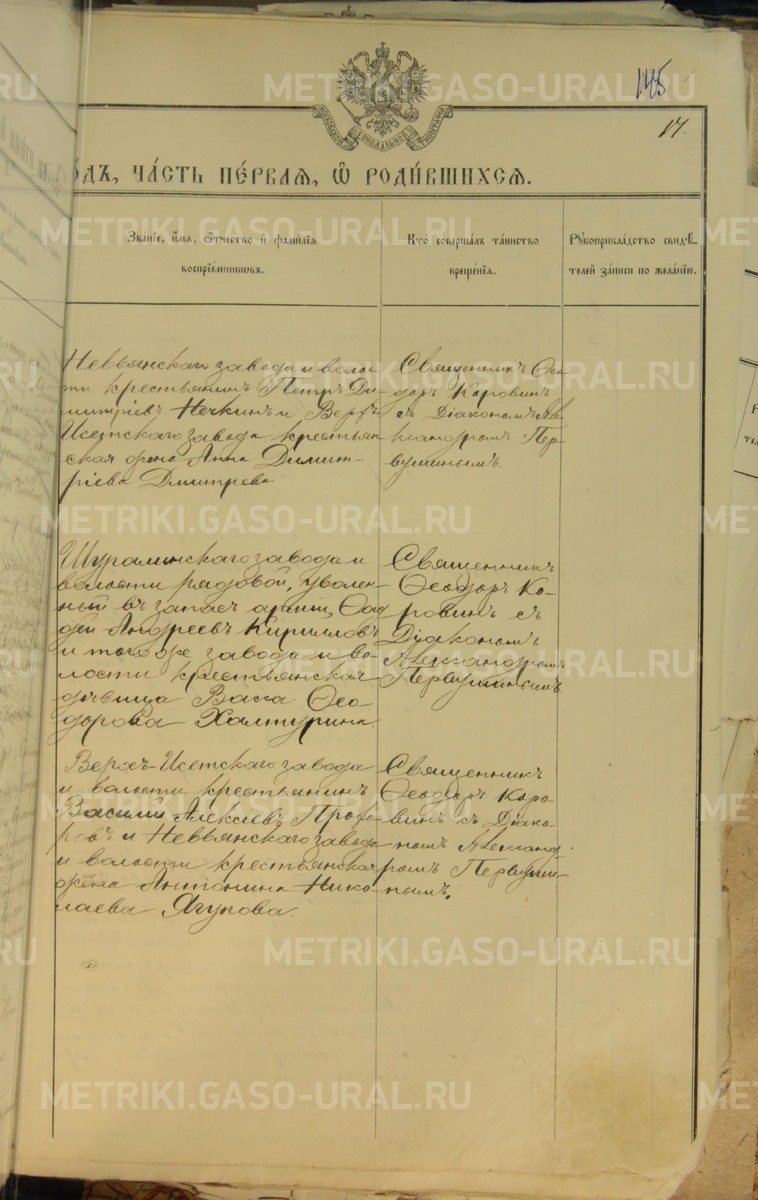 145
17.
МОСКОВСКОЙ СѴНОДАЛЬНОЙ ТИПОГРАФІИ
ГО́ДЪ, ЧА́СТЬ ПЕ́РВАЯ, Ѡ҆ РОДИ́ВШИХСЯ.
Зва́ніе, и҆́мя, ѻ҆́тчество и҆ фами́лія
воспрїе́мниковъ.
Кто̀ соверша́лъ та́инство
креще́нія.
Рꙋкоприкла́дство свидѣ́-
телей за́писи по жела́нію.
Невьянскаго завода и волос-
ти крестьянинъ Петръ Ди-
митріевъ Нечкинъ и Верхъ-
Исетскаго завода крестьян-
ская жена Анна Димит-
ріева Дмитрева
Священникъ Ѳео-
доръ Коровинъ
съ Діакономъ Але-
ксандромъ Пер-
вушинымъ.
Шуралинскаго завода и
волости рядовой, уволен-
ный въ запасъ арміи, Ѳад-
дей Андреевъ Кирилловъ
и того же завода и во-
лости крестьянская
дѣвица Васса Ѳео-
дорова Халтурина
Священникъ
Ѳеодоръ Ко-
ровинъ съ
Діакономъ
Александромъ
Первушинымъ
Верхъ-Исетскаго завода
и волости крестьянинъ
Василій Алексіевъ Прохо-
ровъ и Невьянскаго завода
и волости крестьянская
жена Антонина Нико-
лаева Ягупова.
Священникъ
Ѳеодоръ Коро-
винъ съ Діако-
номъ Александ-
ромъ Первуши-
нымъ.
METRIKI.GASO-URAL.RU